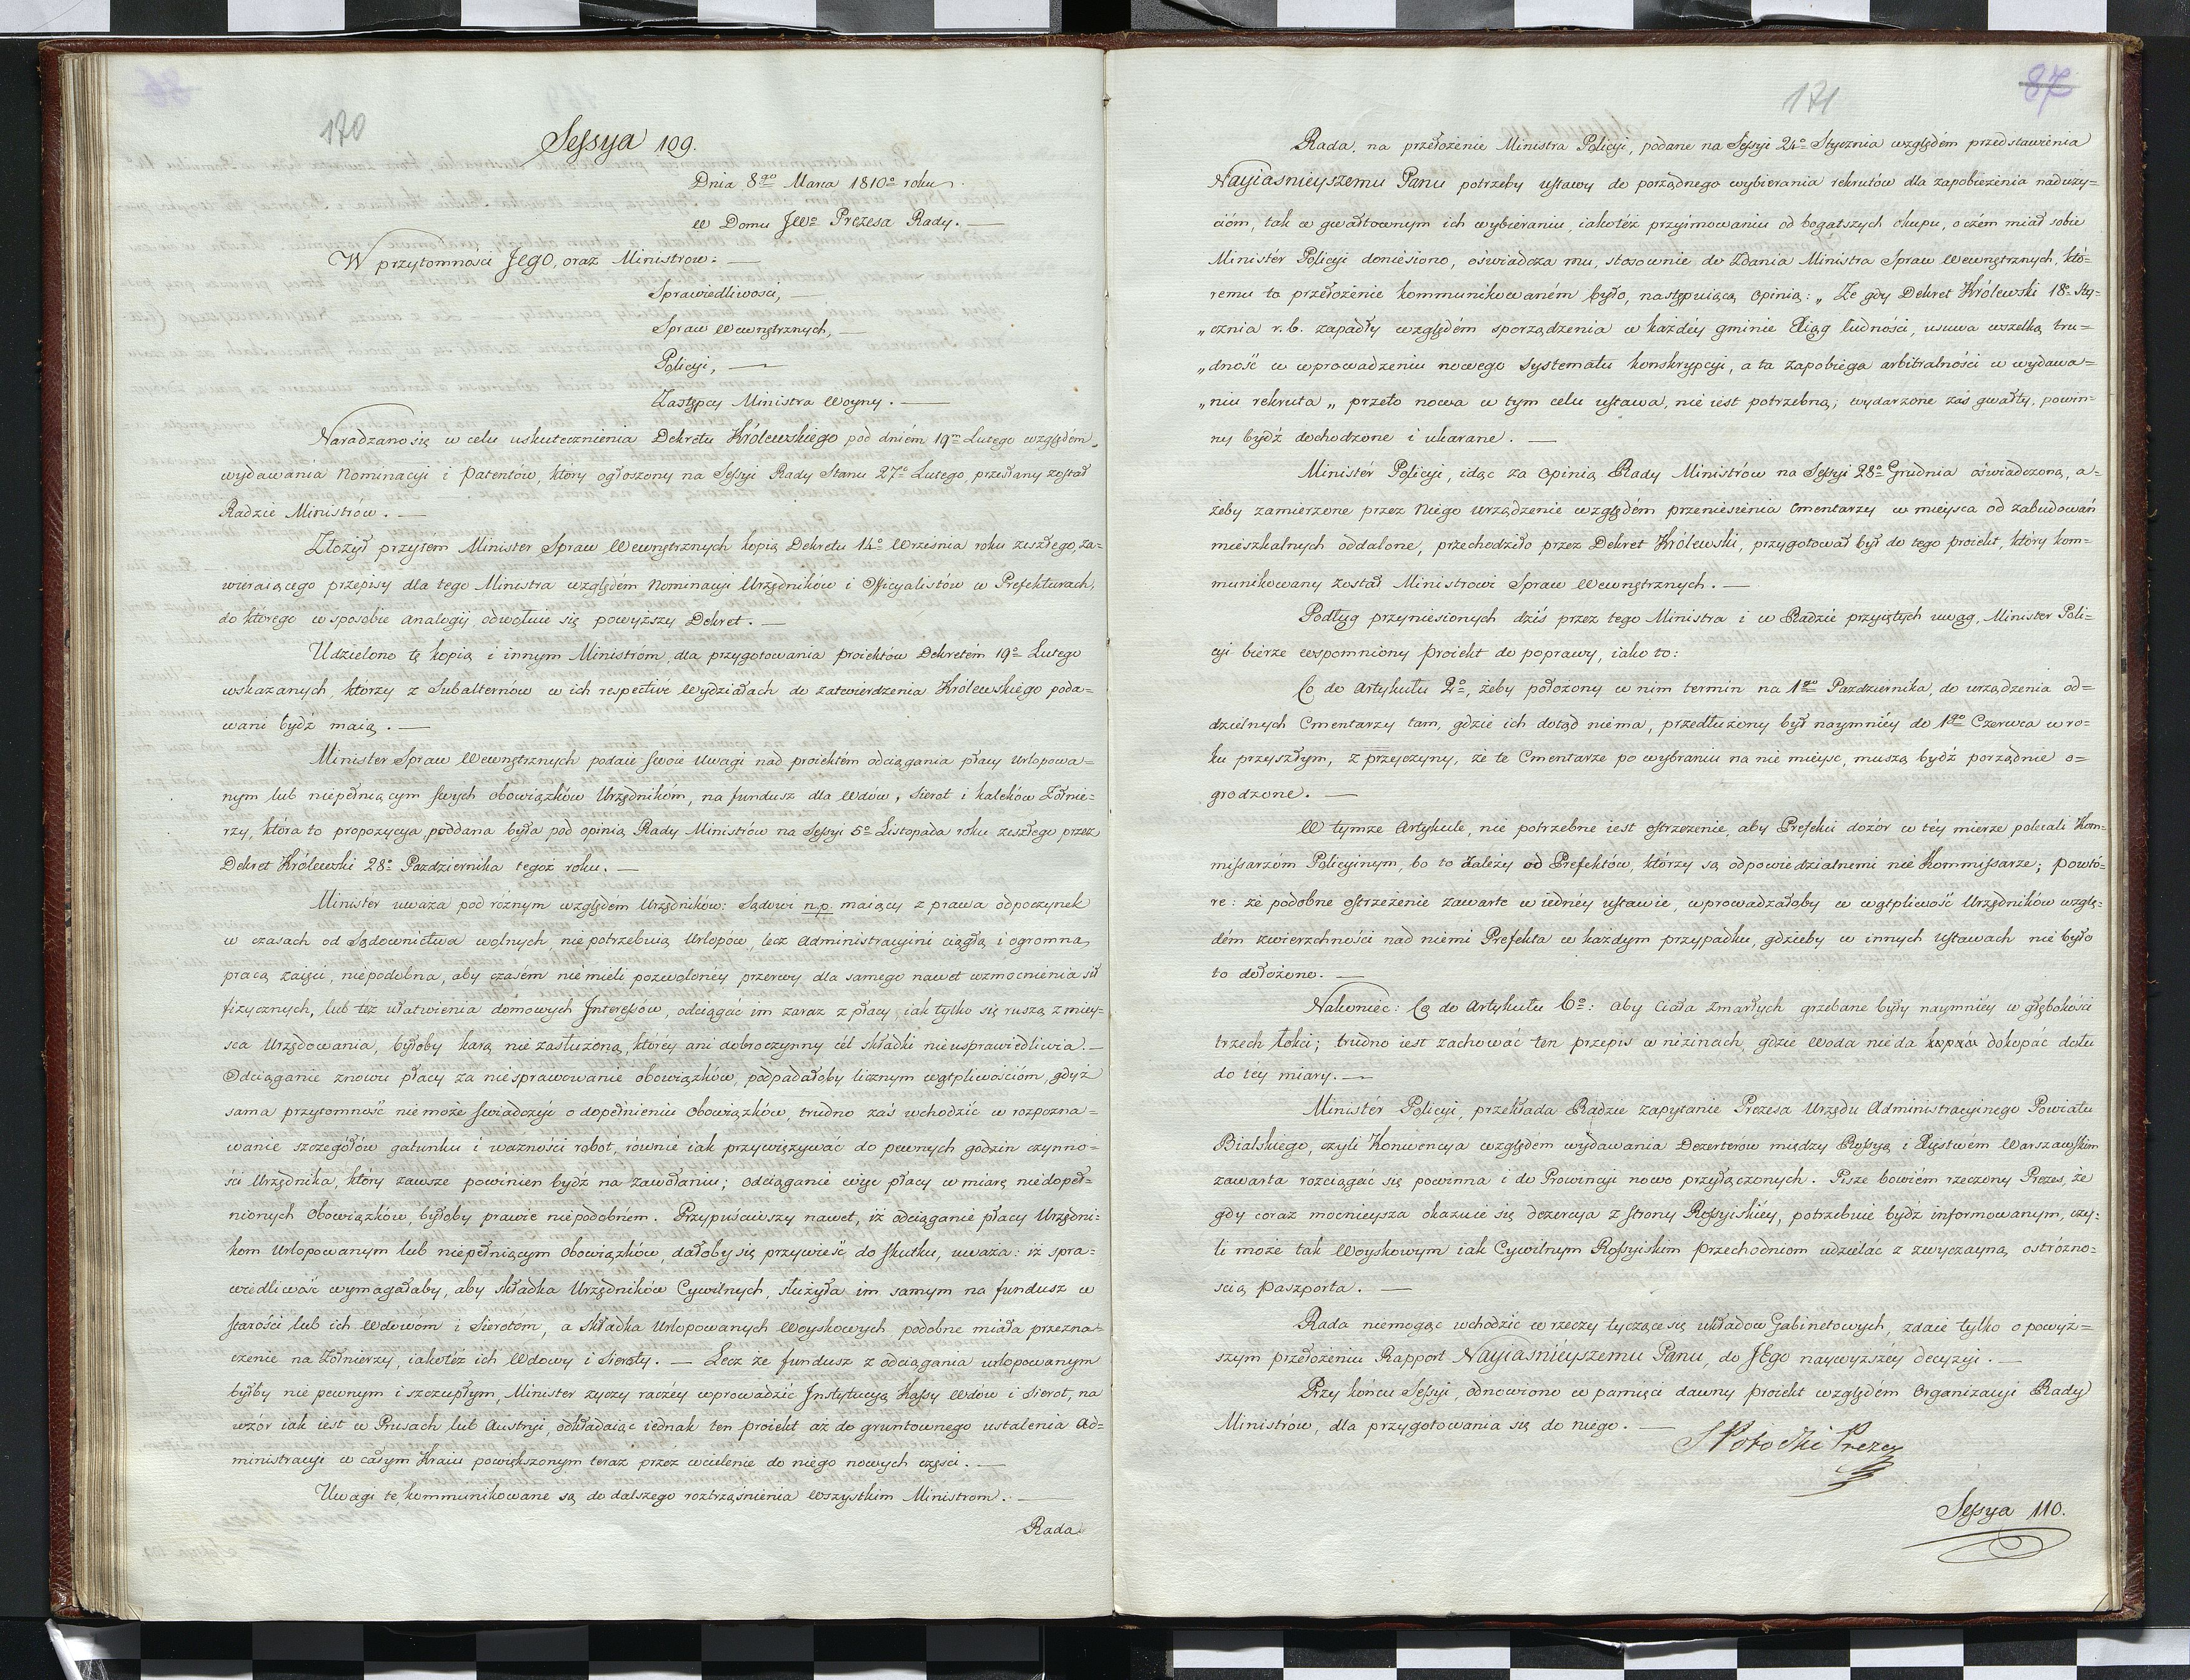 170
Sessya 109.
Dnia 8go Marca 1810o roku.
w Domu JWo Prezesa Rady. —
W przytomności Jego, oraz Ministrow: —
Sprawiedliwości, —
Spraw Wewnętrznych, —
Policyi, —
Zastępcy Ministra Woyny. —
Naradzano się w celu uskutecznienia Dekretu Królewskiego pod dniem 19m Lutego względem
wydawania Nominacyi i Patentów, który ogłoszony na Sessyi Rady Stanu 27o Lutego, przesłany został
Radzie Ministrów. —
Złożył przytem Minister Spraw Wewnętrznych kopią Dekretu 14o Września roku zeszłego, za=
wieraiącego przepisy dla tego Ministra względem Nominacyi Urzędników i Officyalistów w Prefekturach,
do którego w sposobie analogii odwołuie się powyższy Dekret. —
Udzielono tę kopią i innym Ministróm, dla przygotowania proiektów Dekretem 19o Lutego
wskazanych, którzy z Subalternów w ich respective Wydziałach do zatwierdzenia Królewskiego poda=
wani bydź maią. —
Minister Spraw Wewnętrznych podaie swoie Uwagi nad proiektem odciągania płacy Urlopowa=
nym lub niepełniącym swych obowiązków Urzędnikóm, na fundusz dla Wdów, Sierot i kaleków Żołnie=
rzy, która to propozycya, poddana była pod opinią Rady Ministrów na Sessyi 5o Listopada roku zeszłego przez
Dekret Królewski 28o Pazdziernika tegoż roku. —
Minister uważa pod różnym względem Urzędników: Sądowi n.p. maiący z prawa odpoczynek
w czasach od Sądownictwa wolnych, nie potrzebuią Urlopów, lecz Administracyini ciągłą i ogromną
pracą zaięci, niepodobna, aby czasem nie mieli pozwolonéy przerwy dla samego nawet wzmocnienia sił
fizycznych, lub téż ułatwienia domowych Interessów, odciągać im zaraz z płacy iak tylko się ruszą z miey=
sca Urzędowania, byłoby karą nie zasłużoną, któréy ani dobroczynny cél składki nieusprawiedliwia. —
Odciąganie znowu płacy za niesprawowanie obowiązków, podpadałoby licznym wątpliwościóm, gdyż
sama przytomność nie może świadczyć o dopełnieniu Obowiązków, trudno zaś wchodzić w rozpozna=
wanie szczegółów gatunku i ważności robot, równie iak przywięzywać do pewnych godzin czynno=
ści Urzędnika, który zawsze powinien bydź na zawołaniu; odciąganie więc płacy w miarę niedopeł=
nionych Obowiązków, byłoby prawie niepodobném. Przypuściwszy nawet, iż odciąganie płacy Urzędni=
kom Urlopowanym lub niepełniącym Obowiązków, dałoby się przywieść do skutku, uważa: iż spra=
wiedliwość wymagałaby, aby składka Urzędników Cywilnych, służyła im samym na fundusz w
starości lub ich Wdowom i Sierotom, a składka Urlopowanych Woyskowych podobne miała przezna=
czenie na Żołnierzy, iakotéż ich Wdowy i Sieroty. — Lecz że fundusz z odciągania urlopowanym
byłby nie pewnym i szczupłym, Minister życzy raczéy wprowadzić Instytucyą Kassy Wdów i Sierot, na
wzór iak iest w Prusach lub Austryi, odkładaiąc iednak ten proiekt aż do gruntownego ustalenia Ad=
ministracyi w całym Kraiu powiększonym teraz przez wcielenie do niego nowych części. —
Uwagi te, kommunikowane są do dalszego roztrząśnienia Wszystkim Ministrom. —
Rada
171
87
Rada, na przełożenie Ministra Policyi, podane na Sessyi 24o Stycznia względem przedstawienia
Nayiaśnieyszemu Panu potrzeby ustawy do porządnego wybierania rekrutów dla zapobieżenia naduży=
cióm, tak w gwałtownym ich wybieraniu, iakotéż przyimowaniu od bogatszych okupu, o czém miał sobie
Ministér Policyi doniesiono, oświadcza mu, stosownie do Zdania Ministra Spraw Wewnętrznych, któ=
remu to przełożenie kommunikowaném było, następuiącą opinią: „ Że gdy Dekret Królewski 18o Sty=
„cznia r.b. zapadły względém sporządzenia w każdéy gminie Xiąg ludności, usuwa wszelką tru=
„dność w wprowadzeniu nowego Systematu konskrypcyi, a ta zapobiega arbitralności w wydawa=
„niu rekruta „ przeto nowa w tym celu ustawa, nie iest potrzebną; wydarzone zaś gwałty, powin=
ny bydź dochodzone i ukarane. —
Minister Policyi, idąc za opinią Rady Ministrów na Sessyi 28o Grudnia oświadczoną, a=
żeby zamierzone przez Niego urządzenie względém przeniesienia Cmentarzy w mieysca od zabudowań
mieszkalnych oddalone, przechodziło przez Dekret Królewski, przygotował był do tego proiekt, który kom=
munikowany został Ministrowi Spraw Wewnętrznych. —
Podług przyniesionych dziś przez tego Ministra i w Radzie przyiętych uwag, Minister Poli=
cyi bierze wspomniony proiekt do poprawy, iako to:
Co do Artykułu 2o, żeby położony w nim termin na 1go Pazdziernika, do urządzenia od=
dzielnych Cmentarzy tam, gdzie ich dotąd niema, przedłużony był naymniéy do 1go Czerwca w ro=
ku przyszłym, z przyczyny, że te Cmentarze po wybraniu na nie mieysc, muszą bydź porządnie o=
grodzone. —
W tymże Artykule, nie potrzebne iest ostrzeżenie, aby Prefekci dozór w téy mierze polecali Kom=
missarzom Policyinym, bo to zależy od Prefektów, którzy są odpowiedzialnemi nie Kommissarze; powtó=
re: że podobne ostrzeżenie zawarte w iednéy ustawie, wprowadzałoby w wątpliwość Urzędników wzglę=
dém zwierzchności nad niemi Prefekta w każdym przypadku, gdzieby w innych Ustawach nie było
to dołożono. —
Nakoniec: Co do Artykułu 6o: aby Ciała Zmarłych grzebane były naymniéy w głębokości
trzech łokci; trudno iest zachować ten przepis w nizinach, gdzie Woda nie da kopać dokopać dołu
do tey miary. —
Ministér Policyi, przekłada Radzie zapytanie Prezesa Urzędu Administracyinego Powiatu
Bialskiego, czyli Konwencya względem wydawania Dezerterów między Rossyą i Xięstwém Warszawskim
zawarta rozciągać się powinna i do Prowincyi nowo przyłączonych. Pisze bowiém rzeczony Prezes, że
gdy coraz mocnieysza okazuie się dezercya z strony Rossyiskiéy, potrzebuie bydź informowanym, czy=
li może tak Woyskowym iak Cywilnym Rossyiskim przechodniom udzielać z zwyczayną ostrożno=
ścią paszporta. —
Rada niemogąc wchodzić w rzeczy tyczące się układow Gabinetowych, zdaie tylko o powyż=
szym przełożeniu Rapport Nayiaśniéyszemu Panu, do Jego naywyższéy decyzyi. —
Przy końcu Sessyi, odnowiono w pamięci dawny proiekt względém Organizacyi Rady
Ministrów, dla przygotowania się do niego. —
S Potocki Prezes
Sessya 110.